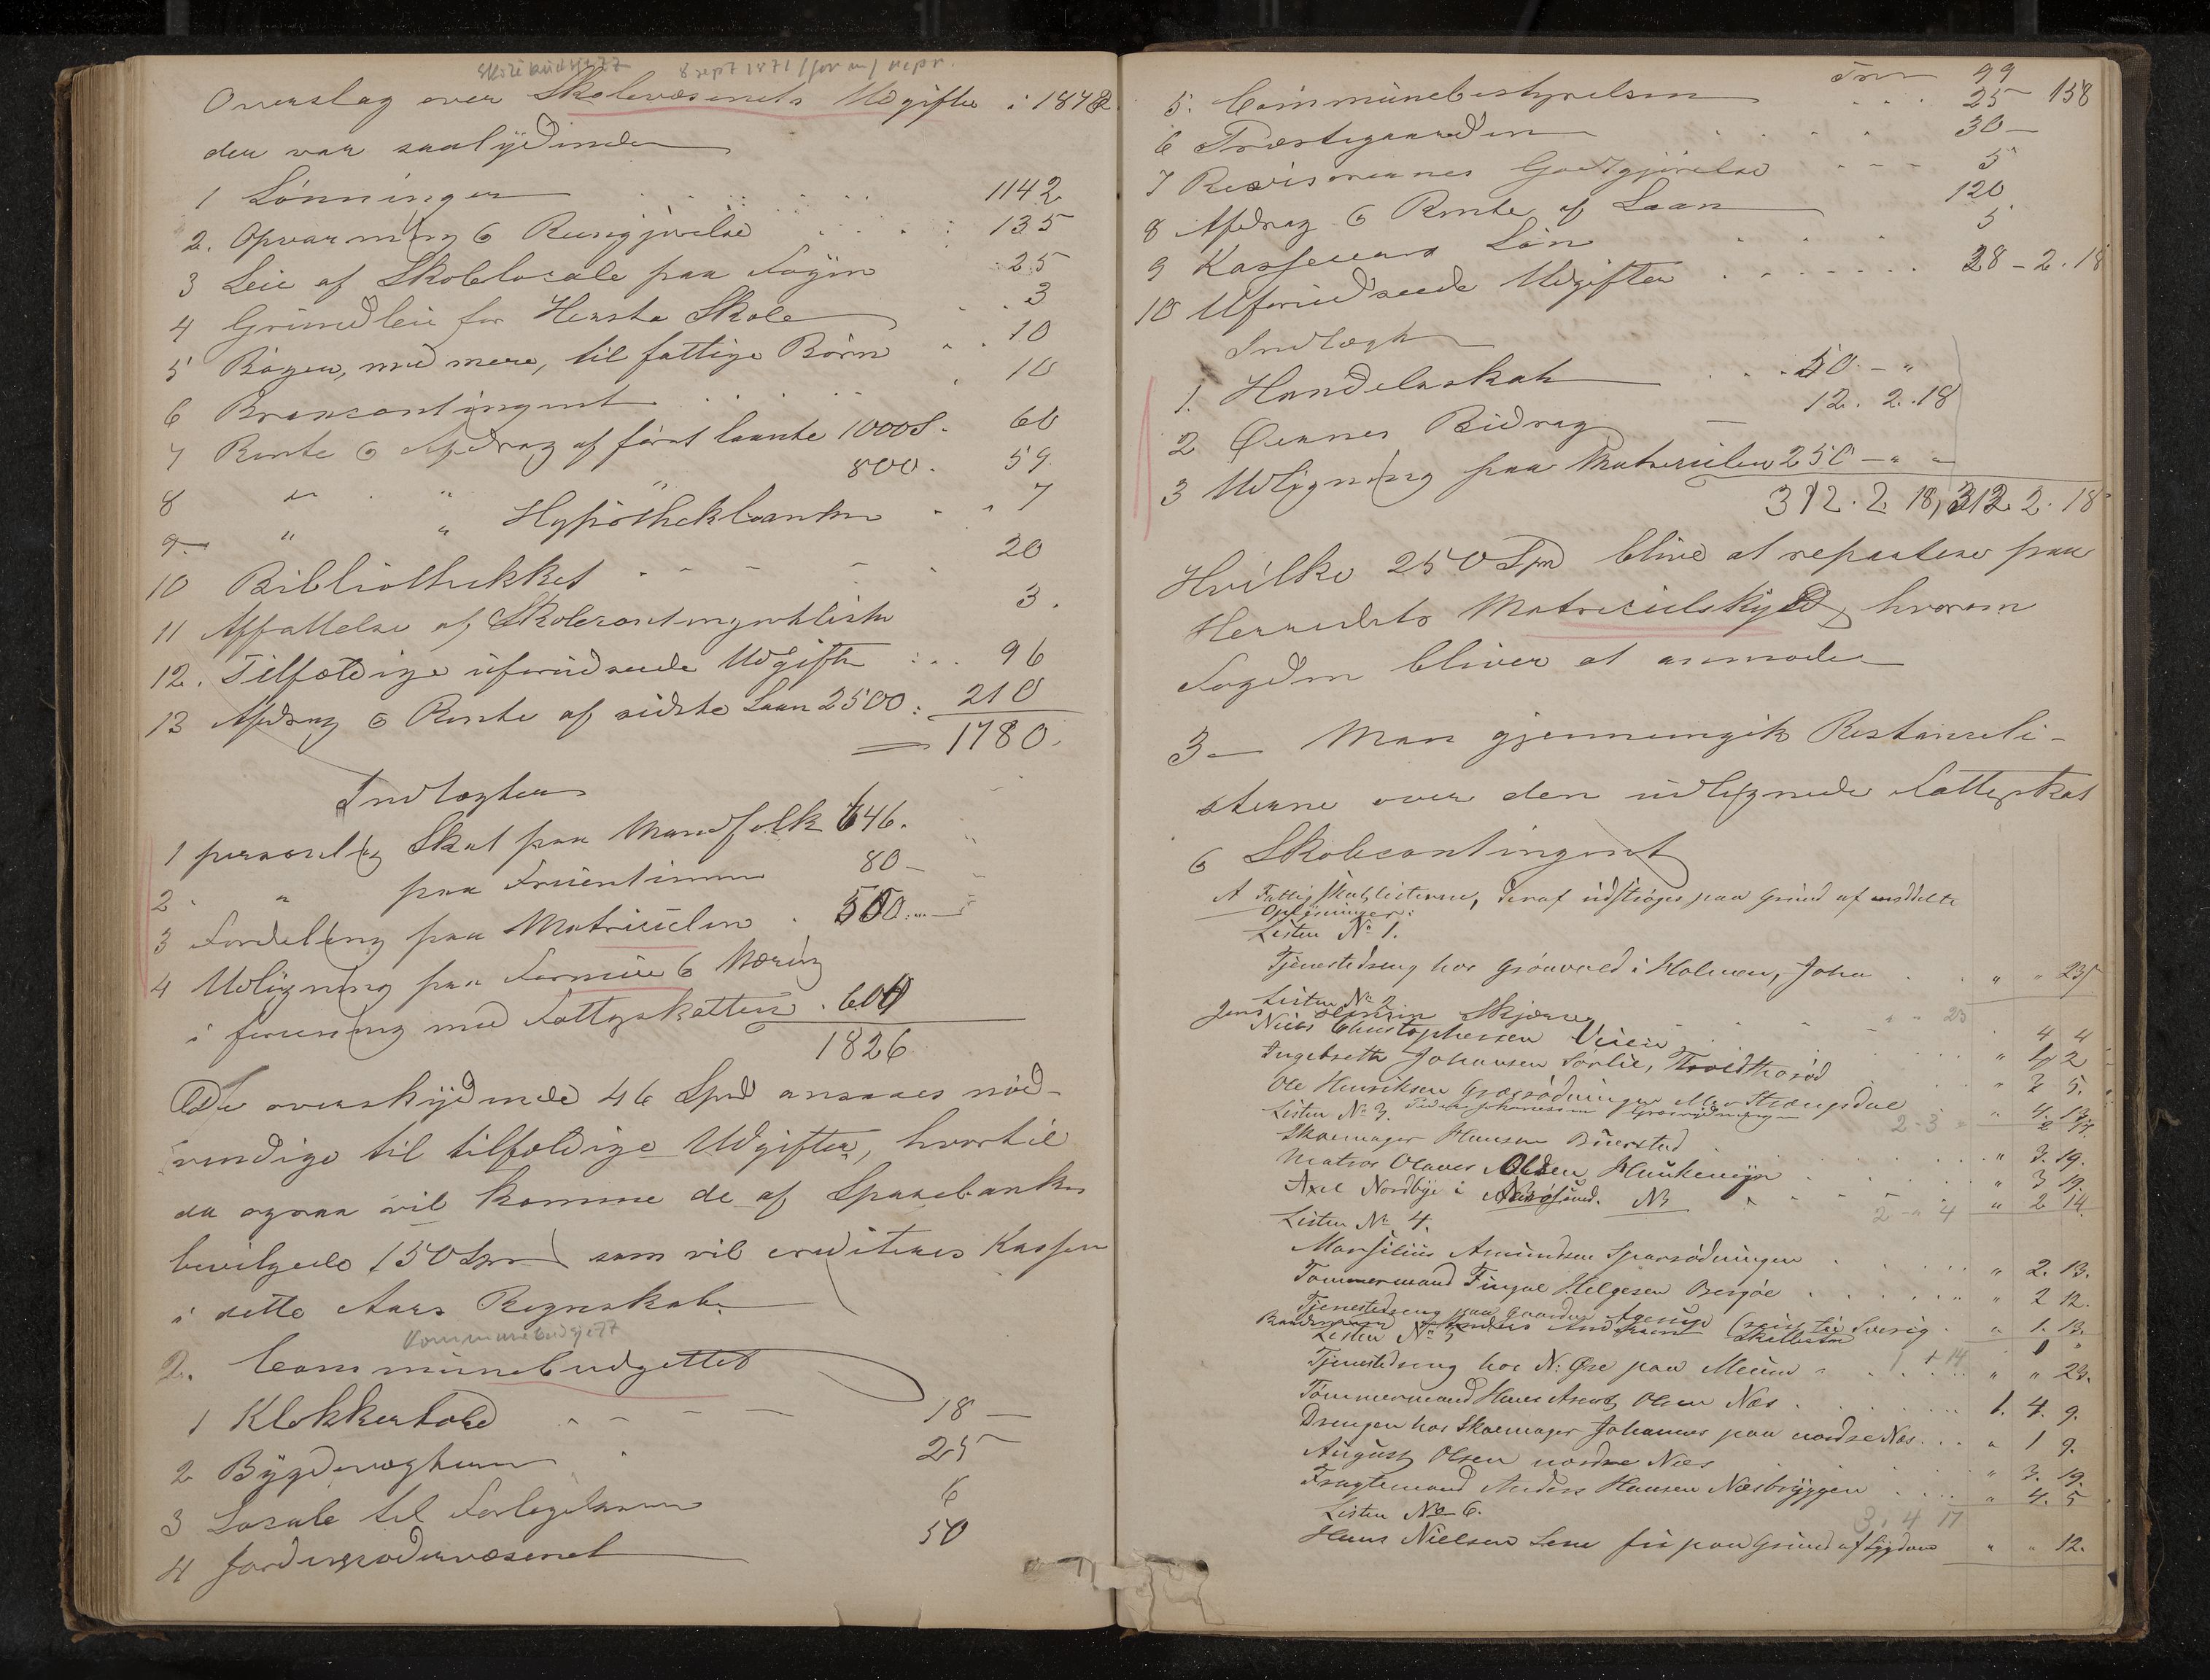 Skolebudsjett 8 sept 1871 /form/ repr.
Overslag over Skolevæsenets Udgifter i 1872
der var saalydende
1 Lønninger 1142
2. Opvarming & Rengjørelse 135
3 Leie af Skolelocale paa Føyen 25
4 Grundleie for Hersta Skole 3
5 Bøger, med mere, til fattige Børn 10
6 Brancontingent 10
7 Rente & Afdrag af først laante 1000 S. 60
8 " " " 800. 59
9 " " Hypothekbanken 7
10 Bibliothekket 20
11 Affattelse af Skolecontingentlister 3.
12. Tilfældige uforudseede Udgifter 96
13 Afdrag & Rente af sidste Laan 2500: 210
= 1780.
Indtægter
1 personlig Skat paa Mandfolk 646.
2. " paa Fruentimmer 80 -
3 Fordeling paa Matriculen 500
4 Udligning paa Formue & Næring
i forening med Fattigskatten 600
1826
De overskydende 46 Spd ansaaes nød-
vendige til tilfældige Udgifter, hvortil
da ogsaa vil komme de af Sparebanken
bevilgede 150 Spd som vil crediteres Kassen
i dette Aars Regnskab.
Kommunebudsjett
2. Communebudgettet
1 Klokkertold 18 -
2 Bygdevægteren 25
3 Locale til Forligelsen 6
4 Jordemodervæsenet 50
Trsp 99
5. Communebestyrelsen 25 158
6 Præstegaarden 30 -
7 Revisorernes Godtgjørelse 5
8 Afdrag & Rente af Laan 120
9 Kasserens Løn 5
10 Uforudseede Udgifter 28 - 2. 18
Indtægt
1. Handelsskat 50. - "
2 Øernes Bidrag 12. 2. 18
3 Udligning paa Matriculen 250 - " -
312. 2. 18, 312. 2. 18
Hvilke 250 Spd blive at repartere paa
Herredets Matriculskyld, hvorom
Fogden bliver at anmode
3 - Man gjennemgik Restanseli-
sterne over den udlignede Fattigskat
& Skolecontingent
A Fattigskatlisterne, deraf udstrøges paa Grund af meddelte
Oplysninger:
Listen No 1.
Tjenestedreng hos Grønvold i Holmen, Johan " " 23
Listen No 2.
Jens Hansen Skjærsø " " 23
Niels Christophersen Veien 4 4
Ingebrette Johansen Sørlie, " 2
Ole Henriksen Græsrødningen " 2 5.
Listen No 3. 2 - 3
Skomager Hansen Buerstad " 3. 19.
Matros Olaves Olsen Munkemyr " 3 19.
Axel Nordbye i Narøsund. No " 2 14.
Listen No 4. 2 - " 4
Marsilius Amundsen Sparrødningen " 2. 13.
Tømmermand Fingal Helgesen Bergøe " 2 12.
Tjenestedreng paa Gaarden Agerup (reist til Sverig " 1. 13.
Listen No 5
Tjenestedreng hos N: Øre paa Meeum 1 + 14 " " 23.
Tømmermand Hans Arent Olsen Nes 1. 4. 9.
Drengen hos Skomager Johannes paa nordre Næs " 1 9.
August Olsen nordre Næs " 3. 19.
Fragtemand Anders Hansen Næsbryggen " 4. 5
Listen No 6. 3. 4 17
Hans Nielsen Lene fri paa Grund af Sygdom " " 12.